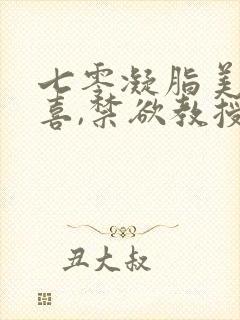 七零凝脂美
喜,禁欲教授
丑大叔